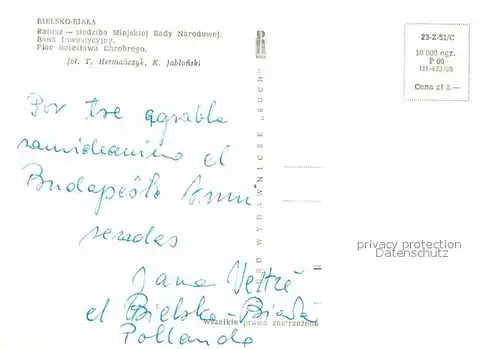 BIELSKO-BIAŁA
Ratusz — siedziba Miejskiej Rady Narodowej.
Bank Inwestycyjny.
Plac Bolesława Chrobrego.
fot. T. Hermańczyk, K. Jabłoński
23-Z-51/C
10 000 egz.
P 60
III-433/68
Cena zł 2.—
BIURO WYDAWNICZE „RUCH”
Por tre agrabla
samideanino el
Budapeŝto Anni
sendas
Jana
el Bielsko-Biała
Pollando
wszelkie prawa zastrzeżone
privacy protection
Datenschutz